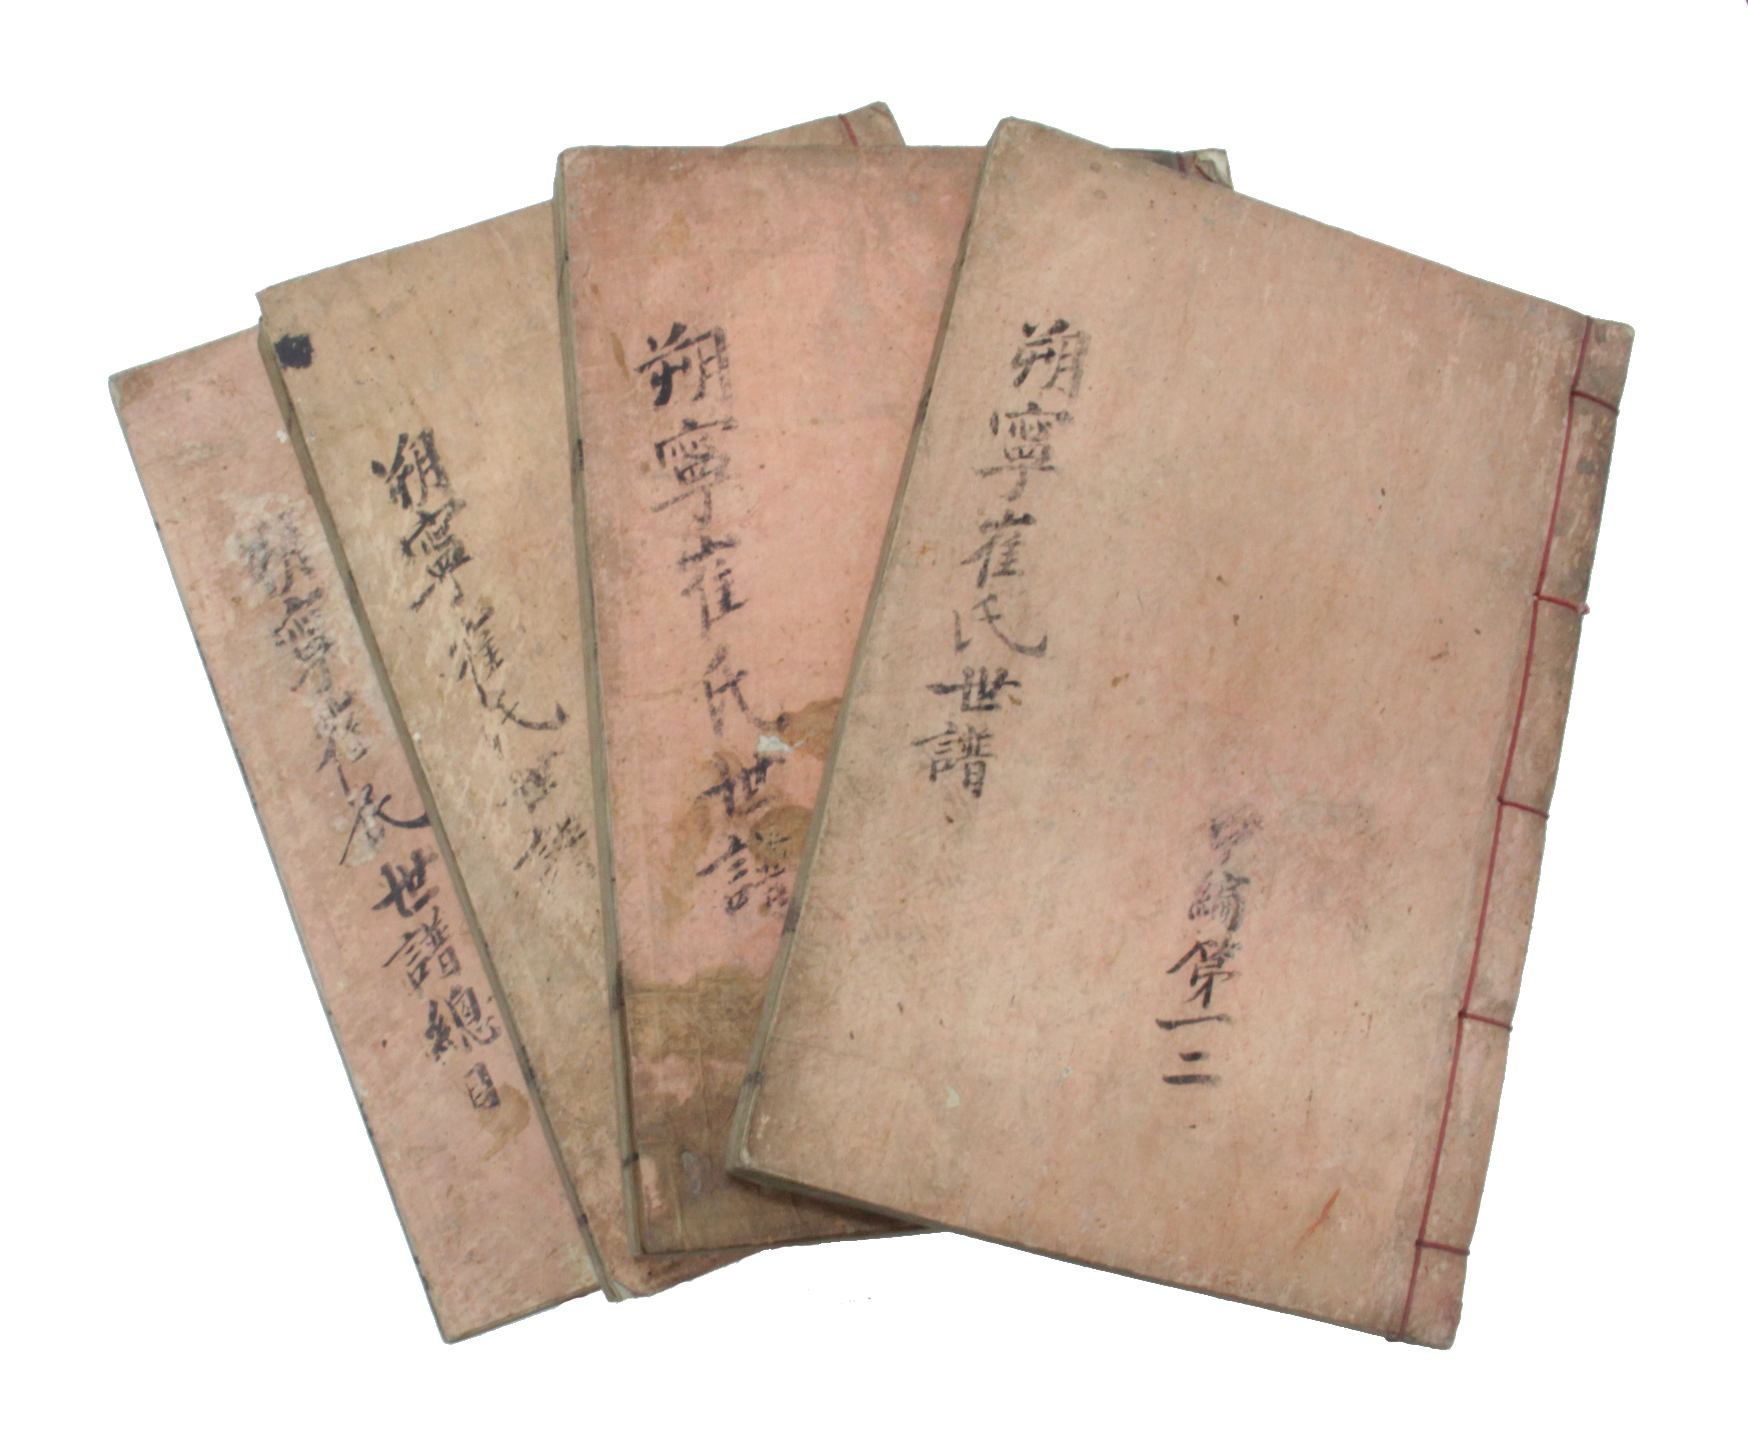 朔寧崔氏世譜
編第一二
朔寧崔氏世譜
朔寧崔氏世譜
朔寧崔氏世譜總目